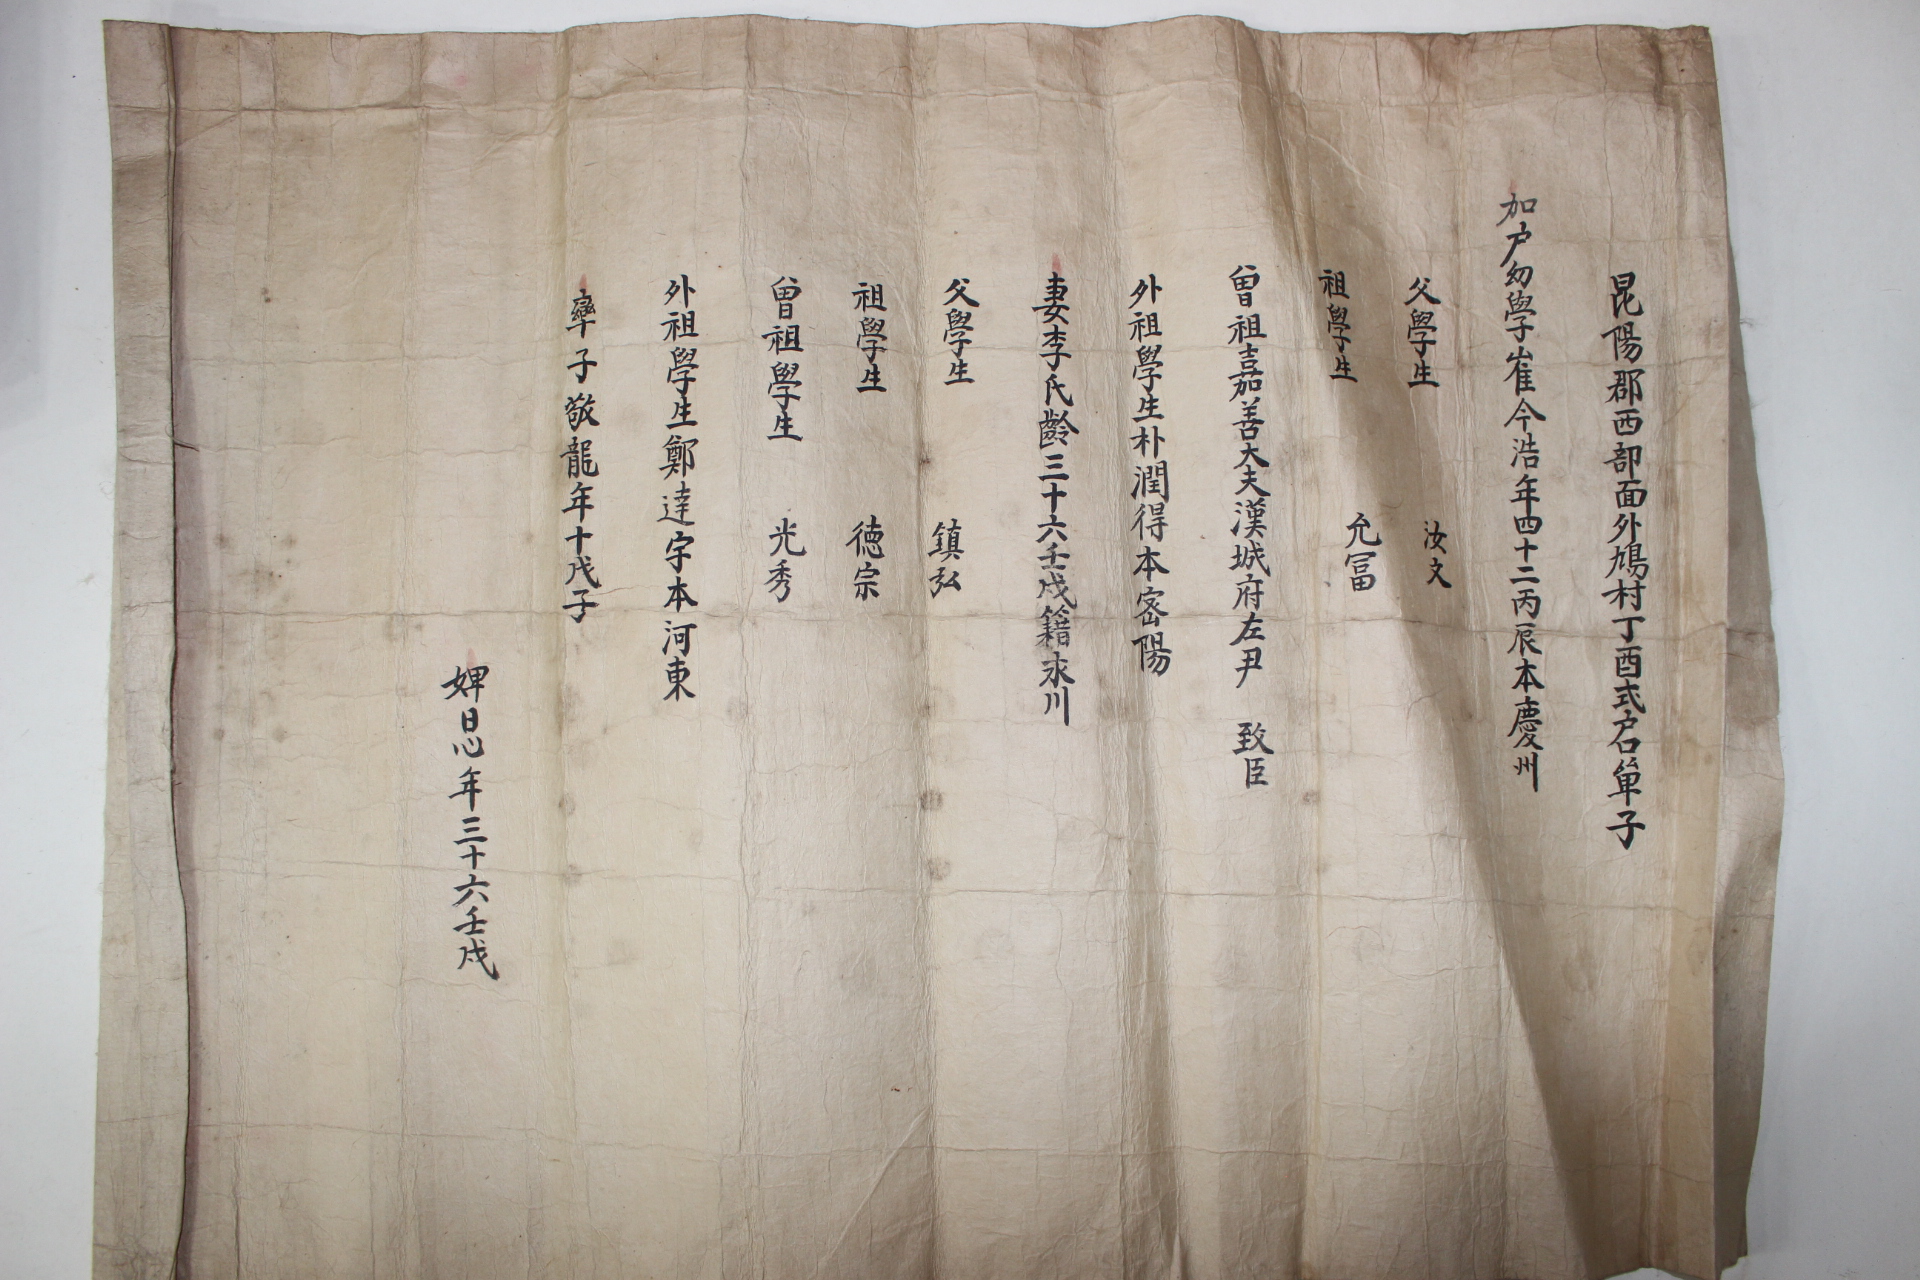 昆陽郡西部面外鳩村丁酉式户口單子
加户幼學崔今浩年四十二丙辰本慶州
父學生 汝文
祖學生 允冨
曾祖嘉善大夫漢城府左尹 致臣
外祖學生朴潤得本宻陽
妻李氏齡三十六壬戌籍永川
父學生 鎮弘
祖學生 德宗
曾祖學生 光秀
外祖學生鄭達宇本河東
率子敬龍年十戊子
婢日心年三十六壬戌